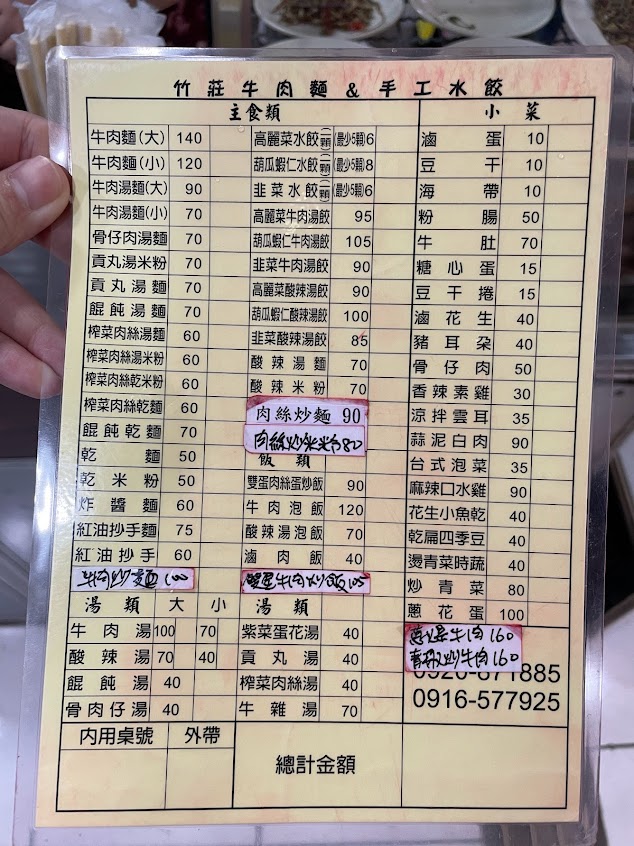 竹莊牛肉麵＆手工水餃
主食類
牛肉麵(大) 140
牛肉麵(小) 120
牛肉湯麵(大) 90
牛肉湯麵(小) 70
骨仔肉湯麵 70
貢丸湯米粉 70
貢丸湯麵 70
餛飩湯麵 60
榨菜肉絲湯麵 60
榨菜肉絲湯米粉 60
榨菜肉絲乾米粉 60
榨菜肉絲乾麵 60
餛飩乾麵 70
乾麵 50
乾米粉 50
炸醬麵 60
紅油抄手麵 75
紅油抄手 60
牛肉炒麵 100
高麗菜水餃(一顆)(最少5顆)6
葫瓜蝦仁水餃(一顆)(最少5顆)8
韭菜水餃(一顆)(最少5顆)6
高麗菜牛肉湯餃 95
葫瓜蝦仁牛肉湯餃 105
韭菜牛肉湯餃 90
高麗菜酸辣湯餃 90
葫瓜蝦仁酸辣湯餃 100
韭菜酸辣湯餃 85
酸辣湯麵 70
酸辣米粉 70
肉絲炒麵 90
肉絲炒米粉80
飯類
雙蛋肉絲蛋炒飯 90
牛肉泡飯 120
酸辣湯泡飯 70
滷肉飯 40
雙蛋牛肉炒飯 105
小菜
滷蛋 10
豆干 10
海帶 10
粉腸 50
牛肚 70
糖心蛋 15
豆干捲 15
滷花生 40
豬耳朵 40
骨仔肉 50
香辣素雞 30
涼拌雲耳 35
蒜泥白肉 90
台式泡菜 35
麻辣口水雞 90
花生小魚乾 40
乾扁四季豆 40
燙青菜時蔬 40
炒青菜 80
蔥花蛋 100
蔥爆牛肉 160
青椒炒牛肉 160
湯類 大 小
牛肉湯 100 70
酸辣湯 70 40
餛飩湯 40
骨肉仔湯 40
湯類
紫菜蛋花湯 40
貢丸湯 40
榨菜肉絲湯 40
牛雜湯 70
0920-671885
0916-577925
內用桌號 外帶
總計金額